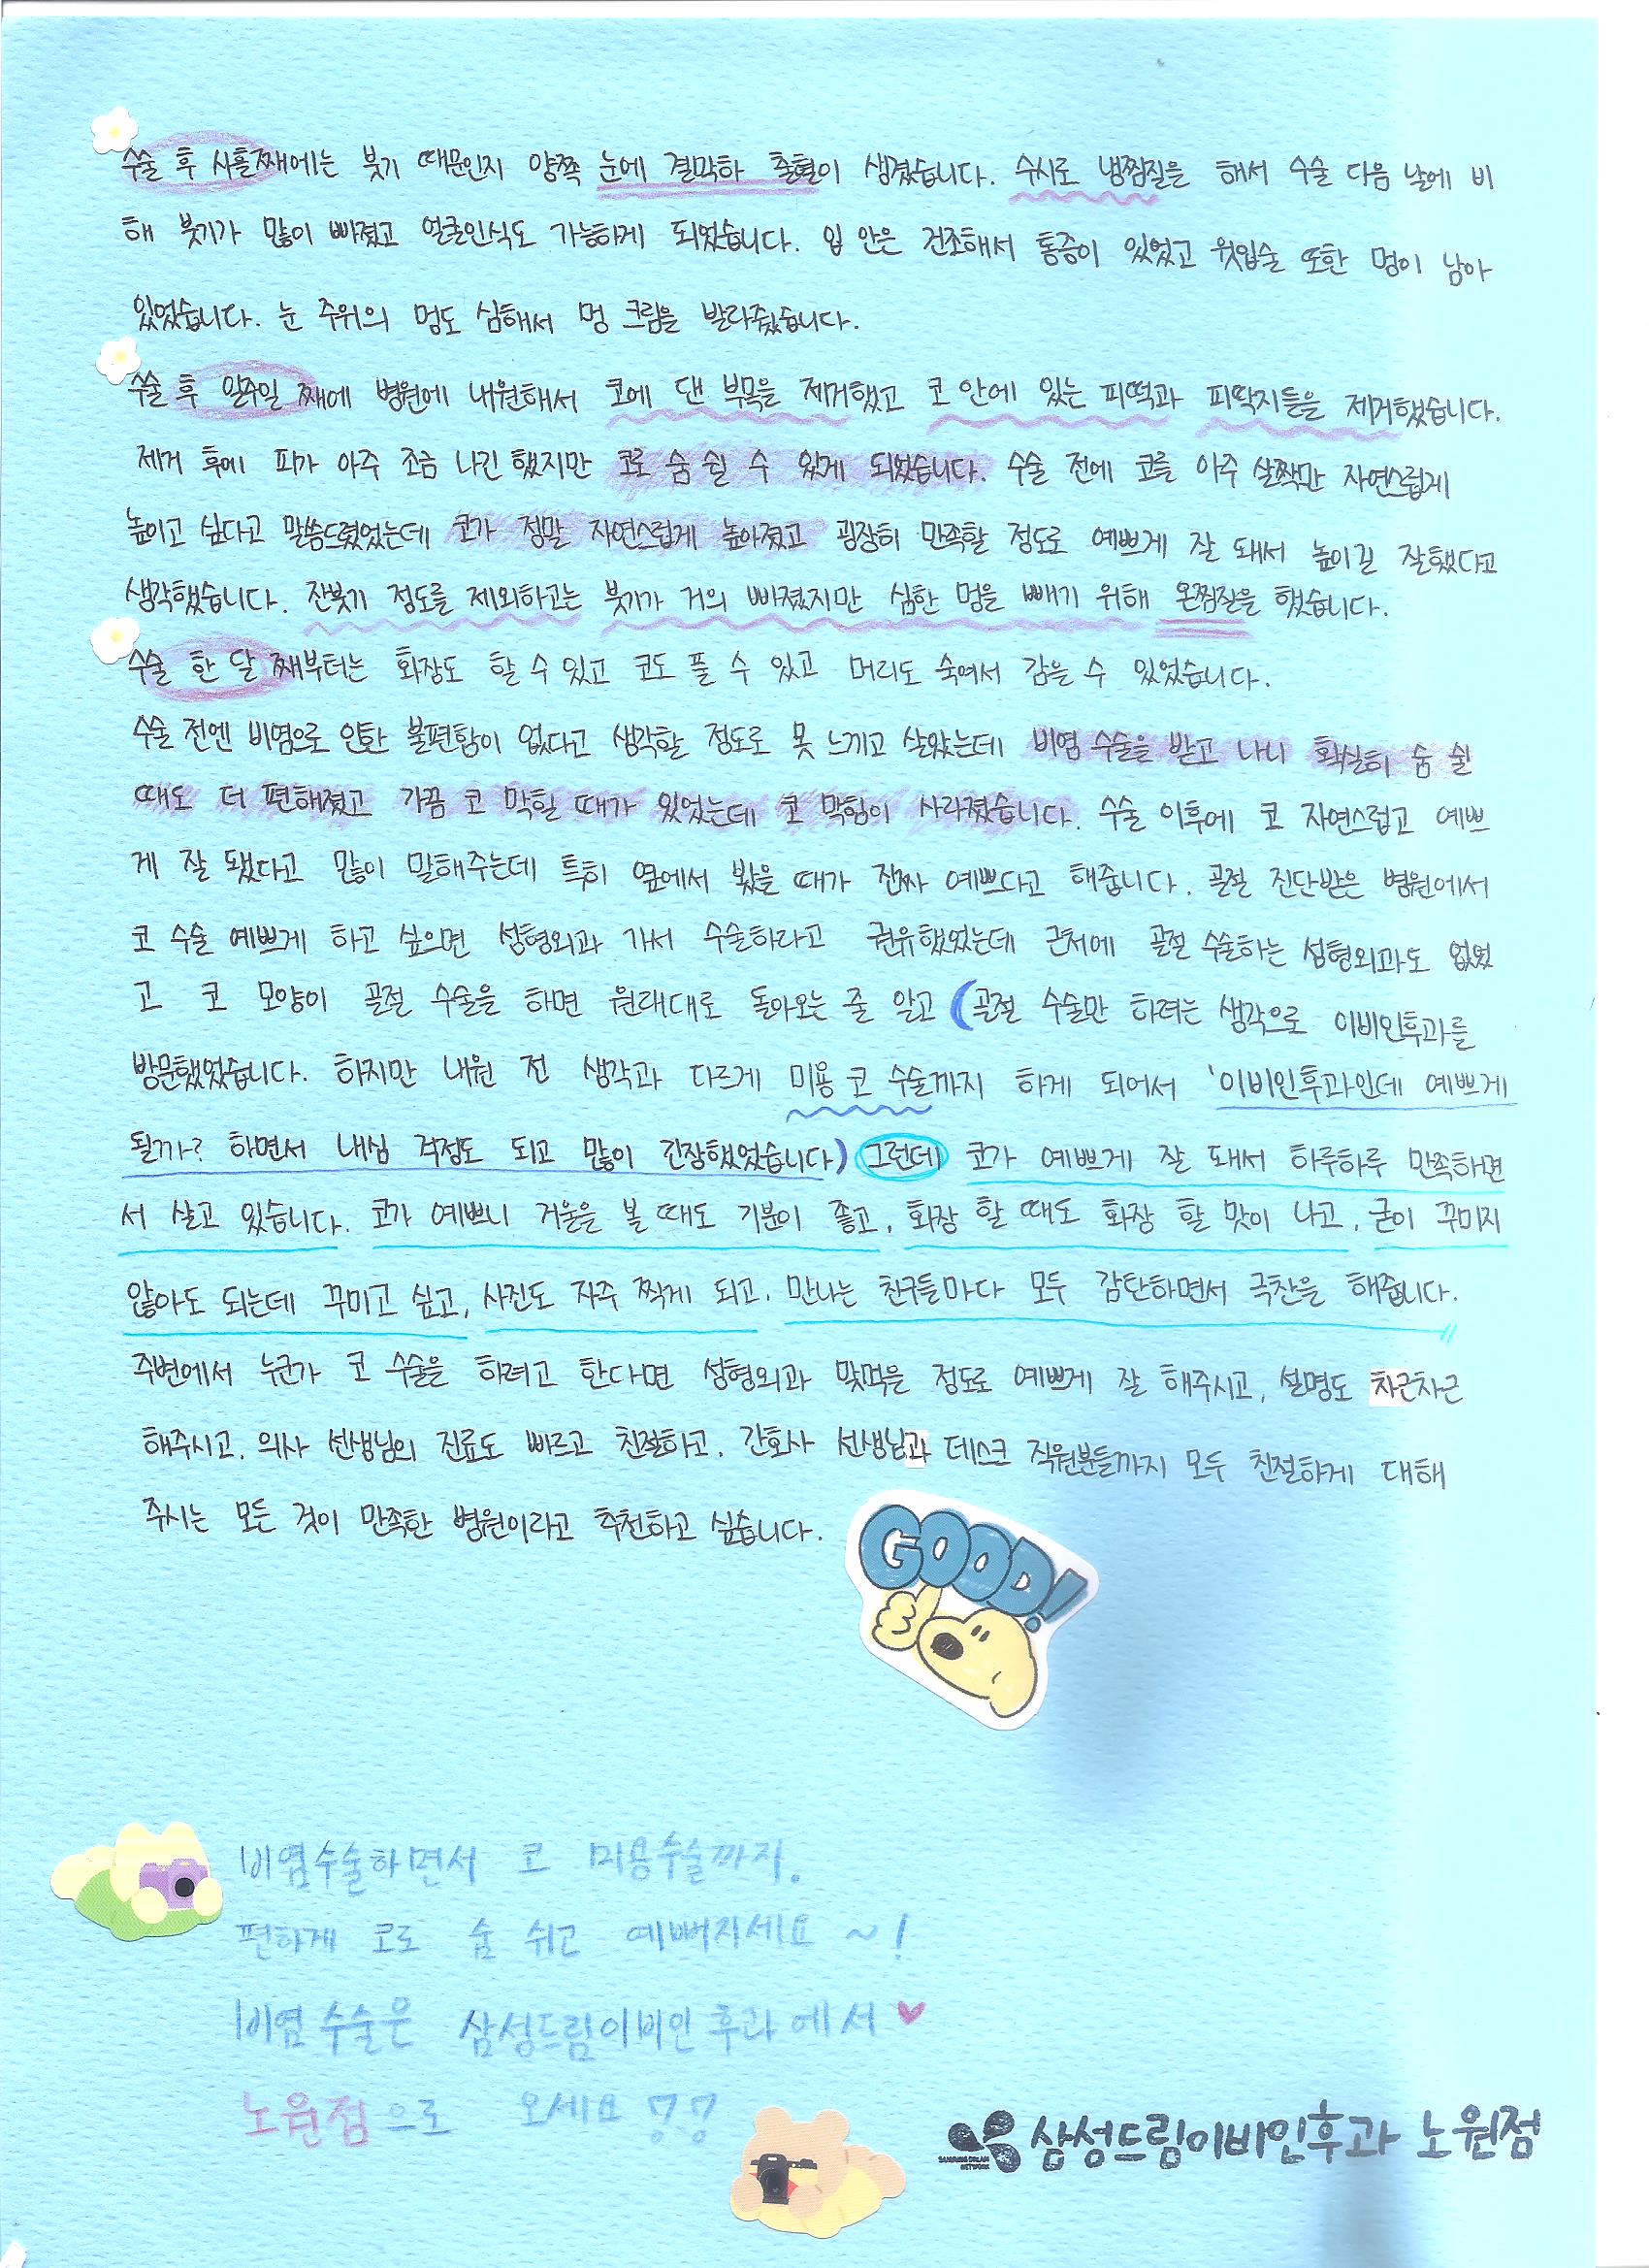 수술 후 사흘째에는 붓기 때문인지 양쪽 눈에 결막하 출혈이 생겼습니다. 수시로 냉찜질을 해서 수술 다음 날에 비
해 붓기가 많이 빠졌고 얼굴인식도 가능하게 되었습니다. 입 안은 건조해서 통증이 있었고 윗입술 또한 멍이 남아
있었습니다. 눈 주위의 멍도 심해서 멍 크림을 발라줬습니다.
수술 후 일주일 째에 병원에 내원해서 코에 댄 부목을 제거했고 코 안에 있는 피떡과 피딱지들을 제거했습니다.
제거 후에 피가 아주 조금 나긴 했지만 코로 숨 쉴 수 있게 되었습니다. 수술 전에 코를 아주 살짝만 자연스럽게
높이고 싶다고 말씀드렸었는데 코가 정말 자연스럽게 높아졌고 굉장히 만족할 정도로 예쁘게 잘 돼서 높이길 잘했다고
생각했습니다. 잔붓기 정도를 제외하고는 붓기가 거의 빠졌지만 심한 멍을 빼기 위해 온찜질을 했습니다.
수술 한 달 째부터는 화장도 할 수 있고 코도 풀 수 있고 머리도 숙여서 감을 수 있었습니다.
수술 전엔 비염으로 인한 불편함이 없다고 생각할 정도로 못 느끼고 살았는데 비염 수술을 받고 나니 확실히 숨 쉴
때도 더 편해졌고 가끔 코 막힐 때가 있었는데 코 막힘이 사라졌습니다. 수술 이후에 코 자연스럽고 예쁘
게 잘 됐다고 많이 말해주는데 특히 옆에서 봤을 때가 진짜 예쁘다고 해줍니다. 골절 진단받은 병원에서
코 수술 예쁘게 하고 싶으면 성형외과 가서 수술하라고 권유했었는데 근처에 골절 수술하는 성형외과도 없었
고 코 모양이 골절 수술을 하면 원래대로 돌아오는 줄 알고 (골절 수술만 하려는 생각으로 이비인후과를
방문했었습니다. 하지만 내원 전 생각과 다르게 미용 코 수술까지 하게 되어서 '이비인후과인데 예쁘게
될까? 하면서 내심 걱정도 되고 많이 긴장했었습니다) 그런데 코가 예쁘게 잘 돼서 하루하루 만족하면
서 살고 있습니다. 코가 예쁘니 거울을 볼 때도 기분이 좋고, 화장 할 때도 화장 할 맛이 나고, 굳이 꾸미지
않아도 되는데 꾸미고 싶고, 사진도 자주 찍게 되고, 만나는 친구들마다 모두 감탄하면서 극찬을 해줍니다.
주변에서 누군가 코 수술을 하려고 한다면 성형외과 맞먹을 정도로 예쁘게 잘 해주시고, 설명도 차근차근
해주시고, 의사 선생님의 진료도 빠르고 친절하고, 간호사 선생님과 데스크 직원분들까지 모두 친절하게 대해
주시는 모든 것이 만족한 병원이라고 추천하고 싶습니다.
GOOD!
비염수술하면서 코 미용수술까지.
편하게 코로 숨 쉬고 예뻐지세요~!
비염 수술은 삼성드림이비인후과에서♥
노원점으로 오세요
삼성드림이비인후과 노원점